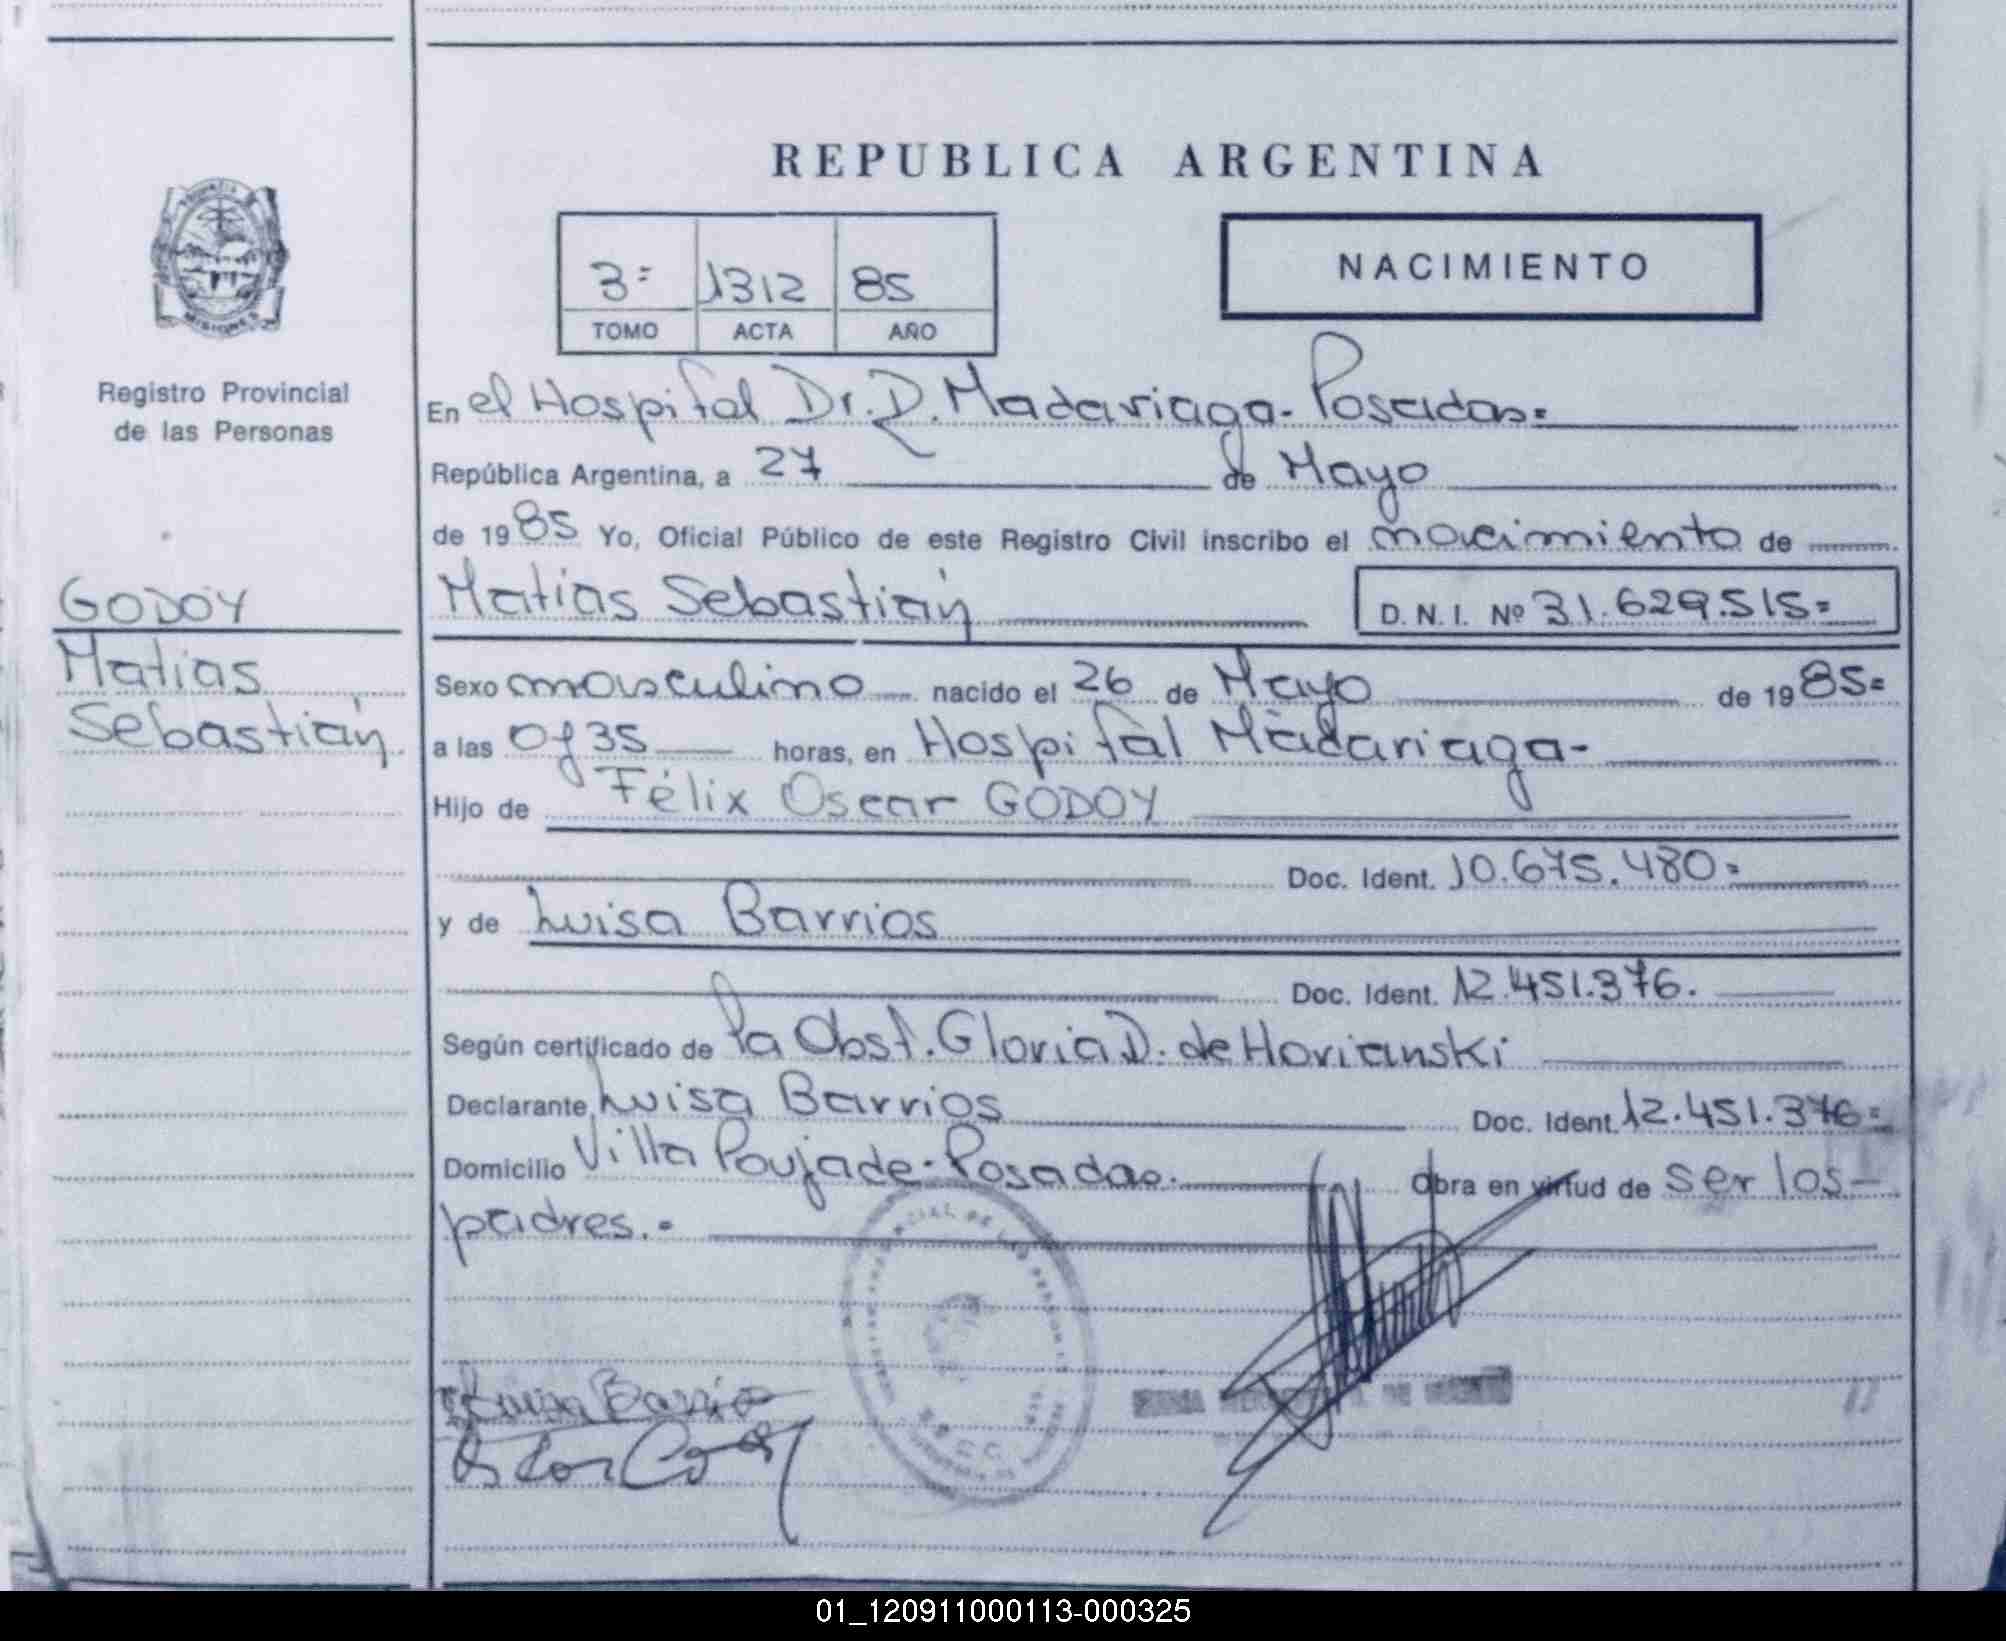 REPUBLICA ARGENTINA
3= 1312 85
TOMO ACTA AÑO
NACIMIENTO
MISIONES
Registro Provincial
de las Personas
GODOY
Matias
Sebastián
En el Hospital Dr. R. Madariaga - Posadas=
República Argentina, a 27 de Mayo
de 1985 Yo, Oficial Público de este Registro Civil inscribo el nacimiento de
Matías Sebastián D.N.I. Nº 31.629.515=
Sexo masculino nacido el 26 de Mayo de 1985=
a las 07 35 horas, en Hospital Madariaga-
Hijo de Félix Oscar GODOY
Doc. Ident. 10.675.480=
y de Luisa Barrios
Doc. Ident. 12.451.376.
Según certificado de la Obst. Gloria D. de Horianski
Declarante Luisa Barrios Doc. Ident. 12.451.376=
Domicilio Villa Poujade - Posadas. Obra en virtud de ser los
padres.-
Luisa Barrio
01_120911000113-000325